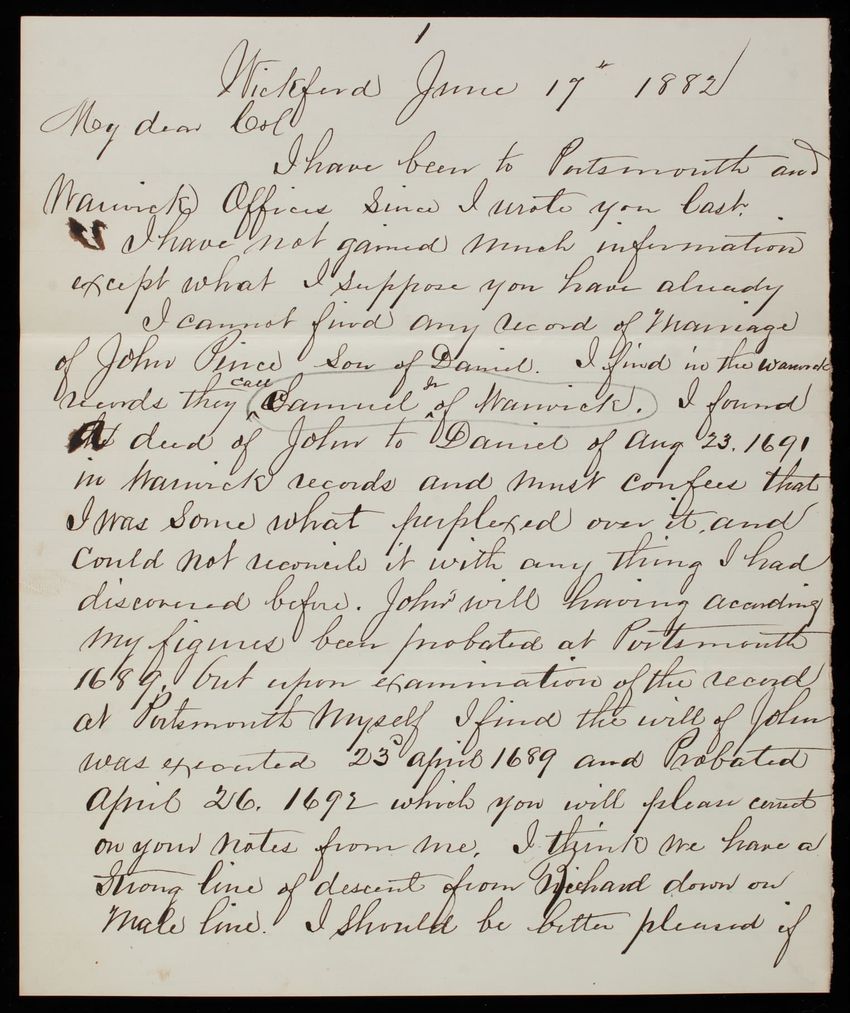 1
Wickford June 17th 1882
My dear Col
I have been to Portsmouth and
Warwick Offices since I wrote you last.
I have not gained much information
except what I suppose you have already
I cannot find any record of Marriage
of John Peirce Son of Daniel. I find in the Warwick
records they call Samuel Jr of Warwick. I found
a deed of John to Daniel of Aug 23. 1691
in Warwick records and must confess that
I was some what perplexed over it, and
could not reconcile it with any thing I had
discovered before. John's will having according
my figures been probated at Portsmouth
1689, but upon examination of the record
at Portsmouth myself I find the will of John
was executed 23d April 1689 and Probated
April 26. 1692 which you will please correct
on your notes from me. I think we have a
Strong line of descent from Richard down on
Male line. I should be better pleased if